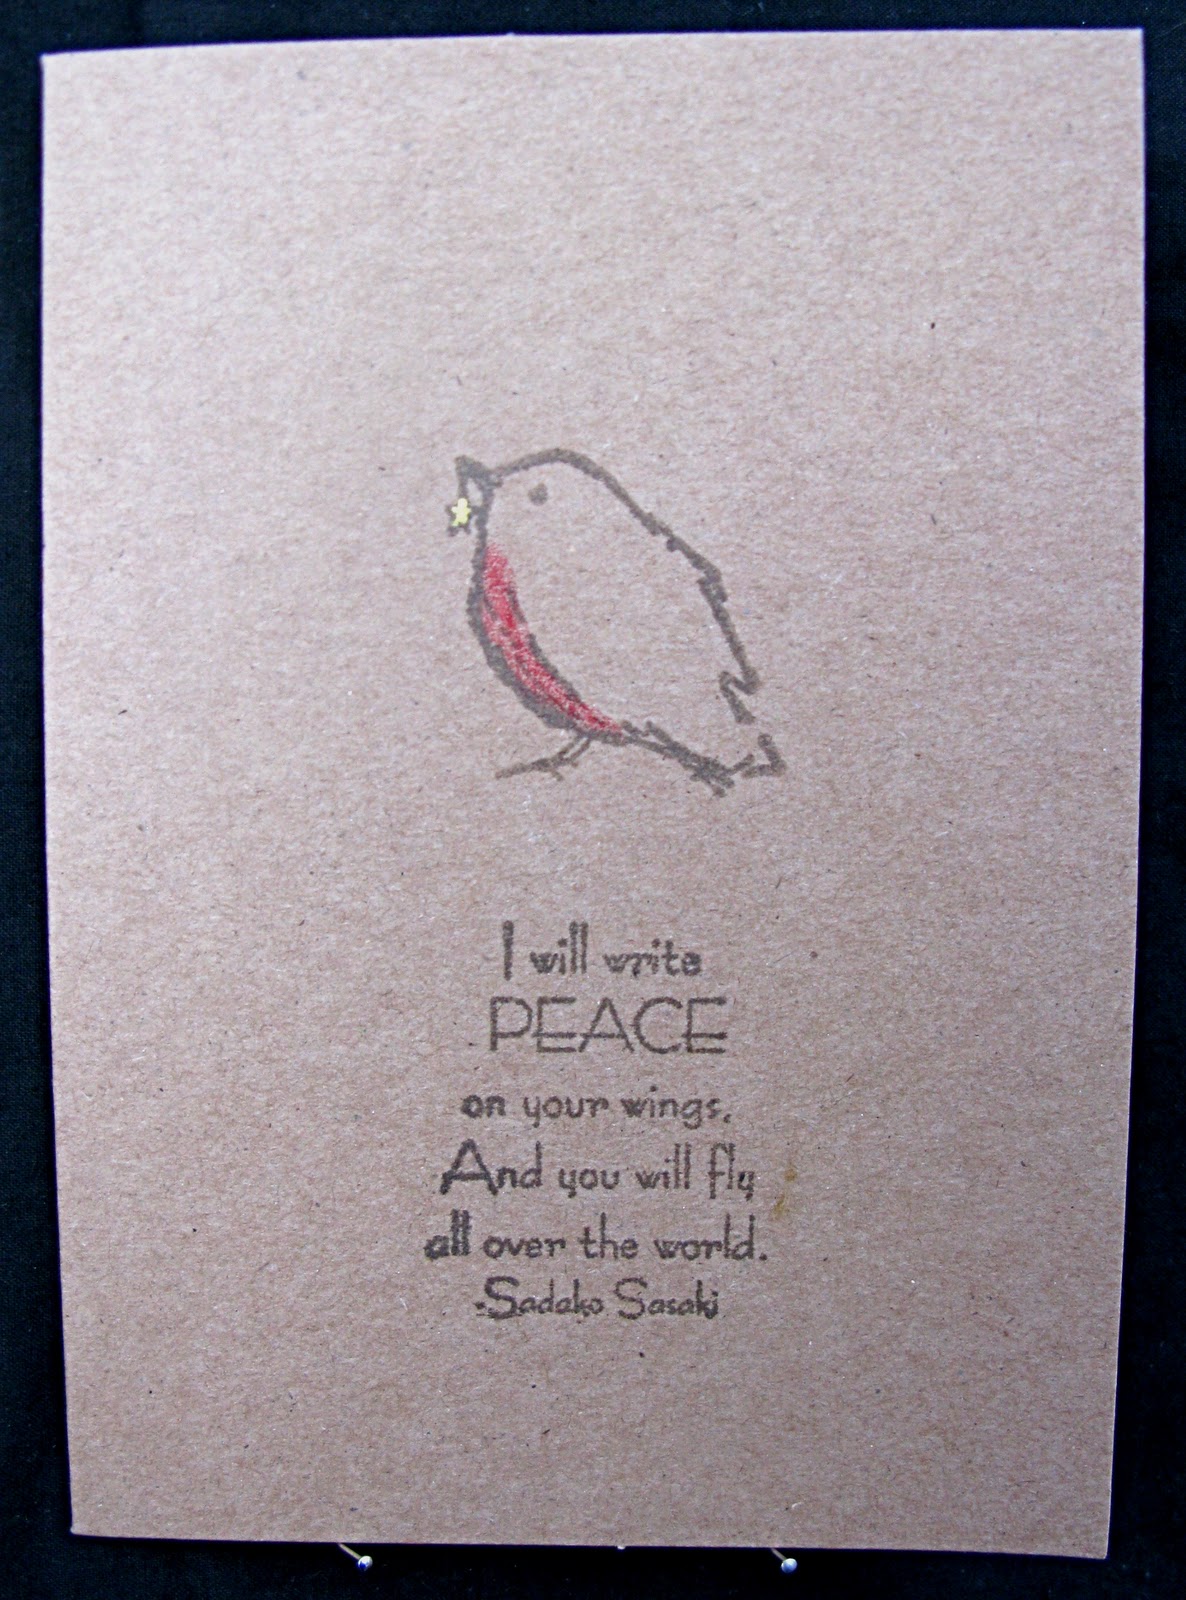 I will write
PEACE
on your wings.
And you will fly
all over the world.
-Sadako Sasaki